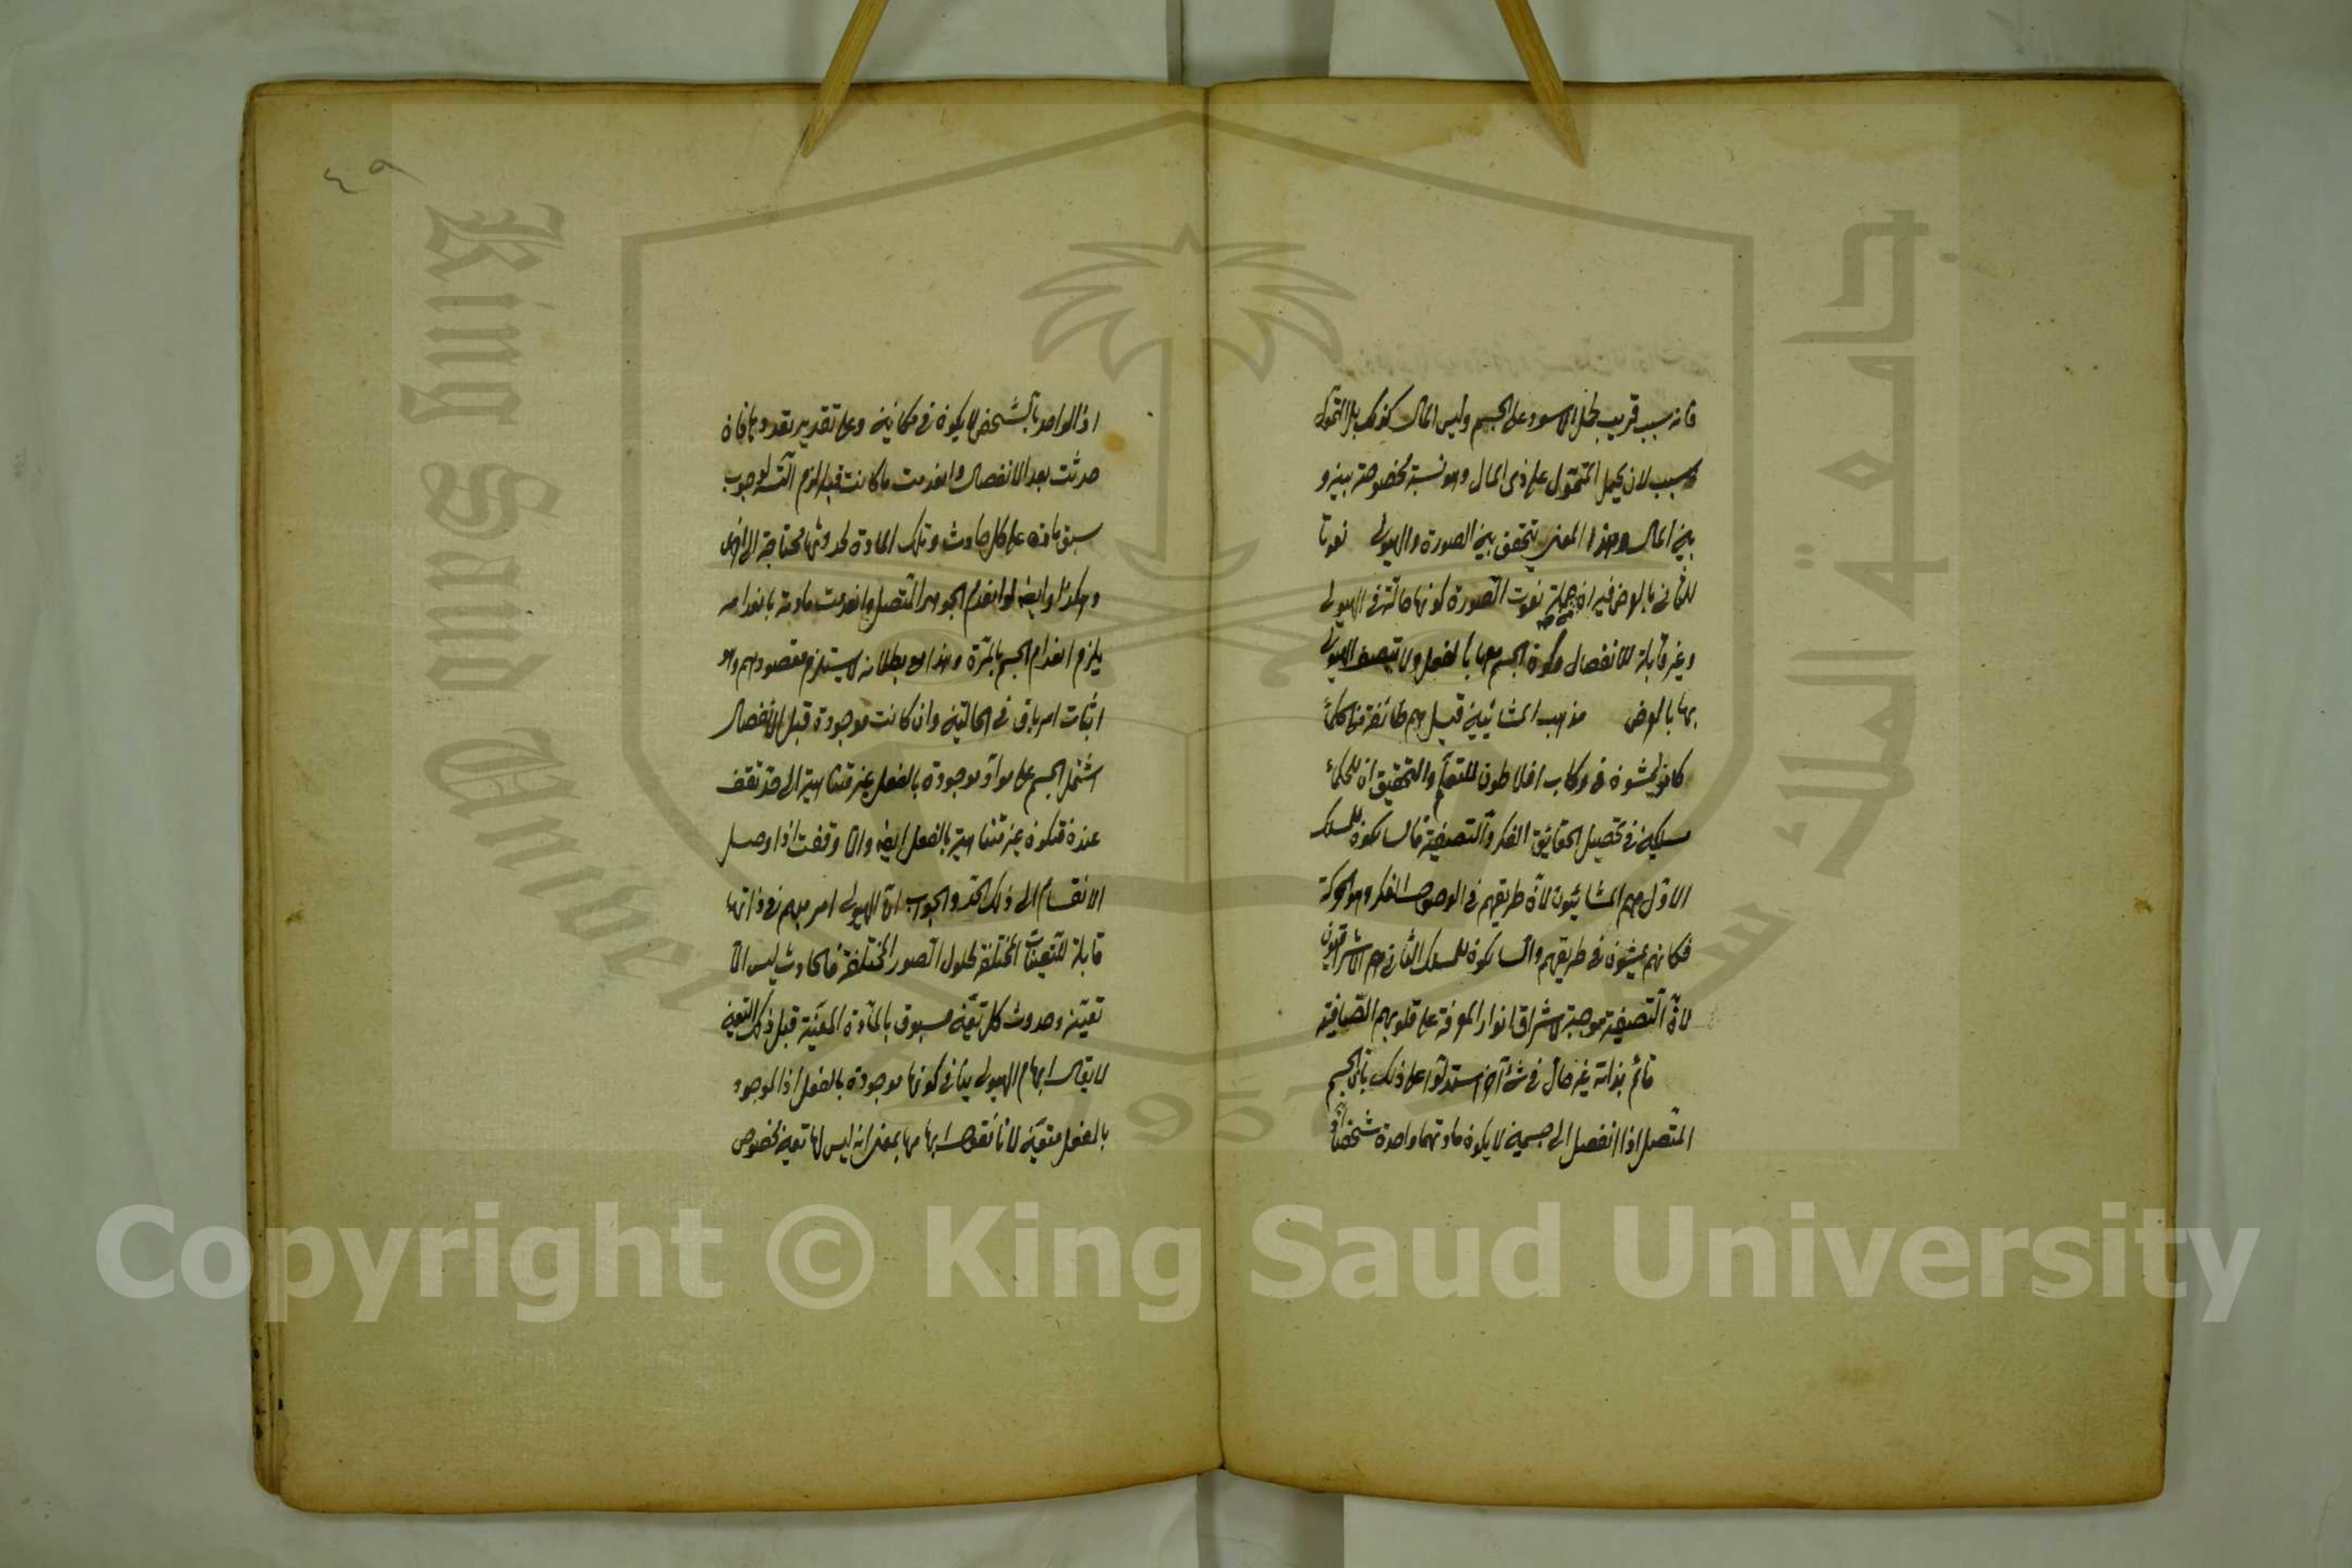 فانه سبب قريب لحمل الاسود على الجسم وليس المال كذلك بل التمول
سبب لان يحمل المتمول على ذي المال وهو نسبة مخصوصة بينه و
بين المال وهذا المعنى يتحقق بين الصورة والهيولى نعوتا
للثاني بالعرض فيه ان جملة نعوت الصورة كونها حالة في الهيولى
وغير قابلة للانفصال وكون الجسم معها بالفعل ولا يتصف الهيولى
بها بالعرض مذهب المشائيين قيل هم طائفة من الحكماء
كانوا يمشون في ركاب افلاطون للتعلم والتحقيق ان للحكماء
مسلكين في تحصيل الحقايق الفكر والتصفية فالسالكون للمسلك
الاول هم المشائيون لان طريقهم في الوصول الفكر وهو الحركة
فكانهم يمشون في طريقهم والسالكون للمسلك الثاني هم الاشراقيون
لان التصفية موجبة لاشراق انوار المعرفة على قلوبهم الصافية
قائم بذاته غير حال في شئ آخر استدلوا على ذلك بان الجسم
المتصل اذا انفصل الى جسمين لا يكون مادتهما واحدة شخصا
٤٩
اذ الواحد بالشخص لا يكون في مكانين وعلى تقدير تعددها فان
حدثت بعد الانفصال وانعدمت ما كانت قبله لزم التسلسل لوجوب
سبق مادة على كل حادث وتلك المادة لحدوثها محتاجة الى اخرى
وهكذا وايضا لو انعدم الجوهر المتصل وانعدمت مادته بانعدامه
يلزم انعدام الجسم بالمرة وهذا مع بطلانه لا يستلزم مقصودهم وهو
اثبات امر باق في الحالتين وان كانت موجودة قبل الانفصال
اشتمل الجسم على مواد موجودة بالفعل غير متناهية الى حد تقف
عنده فتكون غير متناهية بالفعل ايضا والا وقفت اذا وصل
الانقسام الى ذلك الحد والجواب ان الهيولى امر مبهم في ذاتها
قابلة للتعينات المختلفة لحلول الصور المختلفة فالحادث ليس الا
تعينه وحدوث كل تعين مسبوق بالمادة المعينة قبل ذلك التعين
لا يقال ابهام الهيولى ينافي كونها موجودة بالفعل اذ الموجود
بالفعل متعين لانا نقول ابهامها بمعنى انه ليس لها تعين مخصوص
Copyright © King Saud University
King Saud University
جامعة الملك سعود
1957